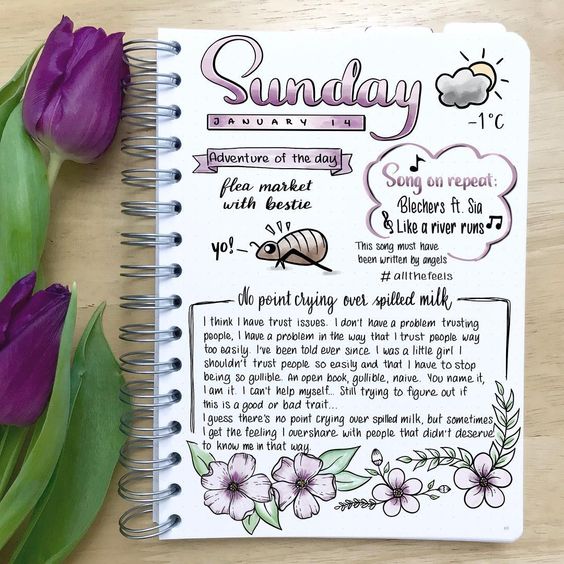 Sunday
JANUARY 14
-1°C
Adventure of the day
flea market
with bestie
Song on repeat:
Blechers ft. Sia
Like a river runs
This song must have
been written by angels
#allthefeels
yo!
No point crying over spilled milk
I think I have trust issues. I don't have a problem trusting
people, I have a problem in the way that I trust people way
too easily. I've been told ever since I was a little girl I
shouldn't trust people so easily and that I have to stop
being so gullible. An open book, gullible, naive.. You name it,
I am it. I can't help myself... Still trying to figure out if
this is a good or bad trait...
I guess there's no point crying over spilled milk, but sometimes
I get the feeling I overshare with people that didn't deserve
to know me in that way.